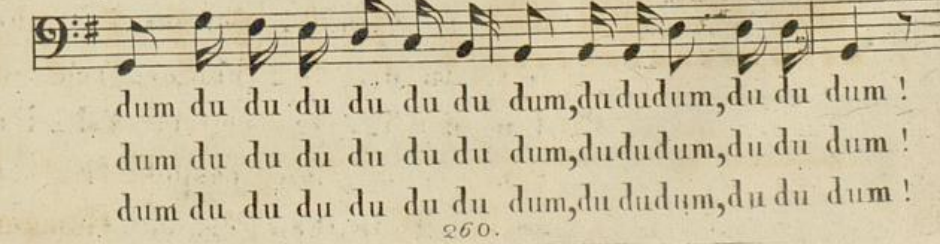 dum du du du du du du dum, du du dum, du du dum !
dum du du du du du du dum, du du dum, du du dum !
dum du du du du du du dum, du du dum, du du dum !
260.